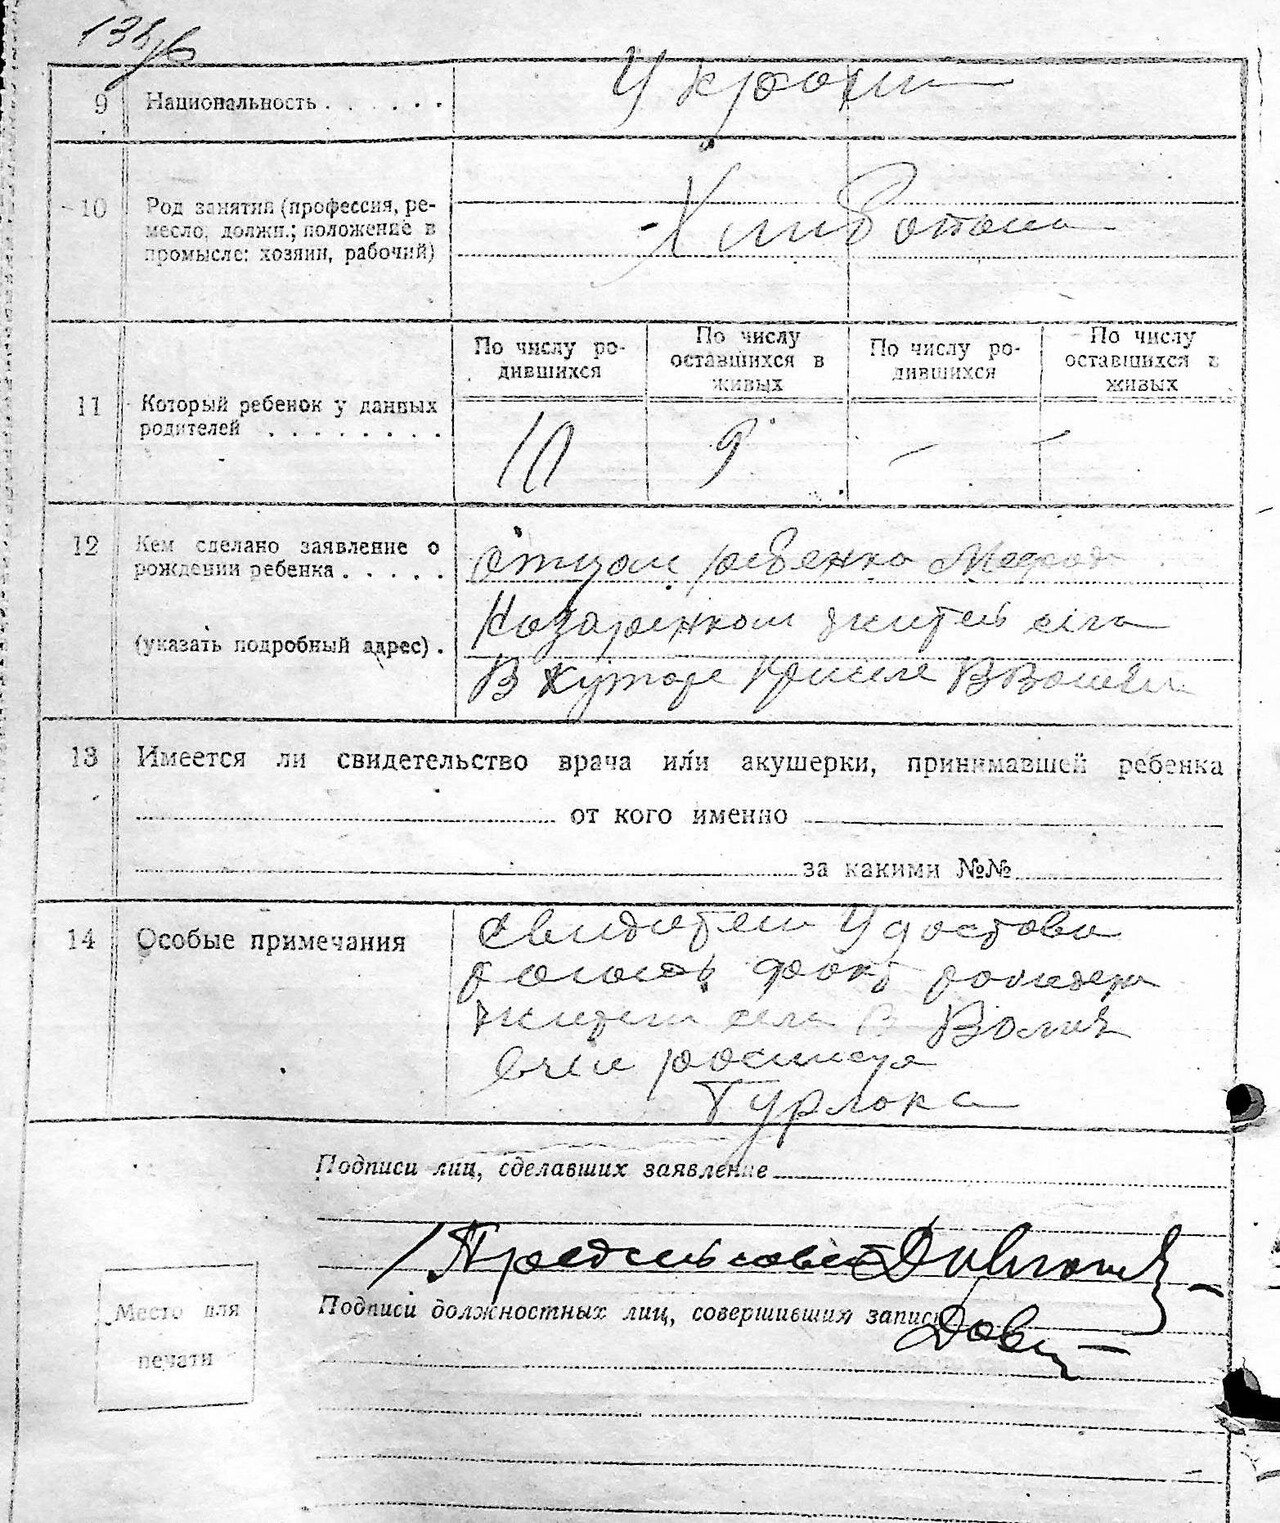 138/б
9 Национальность . . . . . .
Украин
10 Род занятий (профессия, ре-
месло, должн.; положение в
промысле: хозяин, рабочий)
Хлибопаш
11 Который ребенок у данных
родителей . . . . . . . .
По числу ро-
дившихся
По числу
оставшихся в
живых
По числу ро-
дившихся
По числу
оставшихся в
живых
10 9 — —
12 Кем сделано заявление о
рождении ребенка . . . . .
(указать подробный адрес) .
отцом ребенка
Назаренком житель села
В хуторе
13 Имеется ли свидетельство врача или акушерки, принимавшей ребенка
от кого именно
за какими №№
14 Особые примечания
Свидители Удостове
факт
жители села В
росписуя
Турлока
Подписи лиц, сделавших заявление
Предсельсовета
Подписи должностных лиц, совершивших запись
Дов
Место для
печати